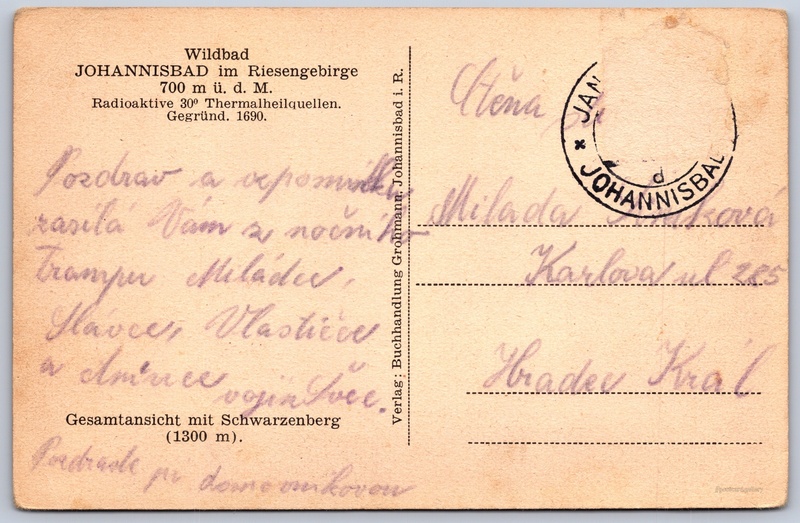 Wildbad
JOHANNISBAD im Riesengebirge
700 m ü. d. M.
Radioaktive 30⁰ Thermalheilquellen.
Gegründ. 1690.
Pozdrav a vzpomínku
zasílá Vám z nočního
Trampu Miládce,
Slávce, Vlastičce
a
vojín Švec.
Gesamtansicht mit Schwarzenberg
(1300 m).
Pozdravte pí domovníkovou
Verlag: Buchhandlung Grohmann, Johannisbad i. R.
JAN
* JOHANNISBAD
d
Ctěná
Milada
Karlova ul 285
Hradec Král